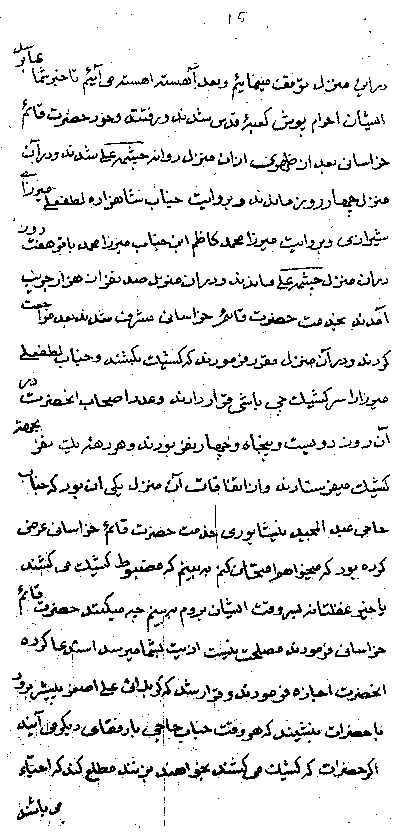 ۱۵
در این منزل توقف مینمائیم و بعد آهسته آهسته می آئیم تا خبر شما بما برسد
ایشان احرام پوش کعبهٔ قدس شدند و رفتند و خود حضرت قائم
خراسانی بعد از ظهری از آن منزل روانه چشمه علی شدند و در آن
منزل چهار روز ماندند و بروایت جناب شاهزاده لطفعلی میرزای
شیرازی و بروایت میرزا محمد کاظم ابن جناب میرزا محمد باقر هفت روز
در آن منزل چشمه علی ماندند و در آن منزل صد نفر از هزار جریب
آمدند بخدمت حضرت قائم خراسانی مشرف شدند بعد مراجعت
کردند و در آن منزل مقرر فرمودند که کشیک بکشند و جناب لطفعلی
میرزا را سر کشیکچی باشی قرار دادند و عدد اصحاب آنحضرت در
آن روز دویست و پنجاه و چهار نفر بودند و هر دهه یک نفر بجهة
کشیک میفرستادند و از اتفاقات آن منزل یکی آن بود که جناب
حاجی عبد المجید نیشابوری خدمت حضرت قائم خراسانی عرض
کرده بود که میخواهم امتحان کنم به بینم که مضبوط کشیک می کشند
یا خیر غفلتا بسر وقت ایشان بروم به بینم چه میکنند حضرت قائم
خراسانی فرمودند مصلحت نیست اذیت بشما میرسد استدعا کرده
آنحضرت اجازه فرمودند و قرار شد که کربلائی علی اصغر پیشرو
با حضرات بنشیند که هر وقت جناب حاجی با رفقای دیگر می آیند
اگر حضرات که کشیک می کشند بخواهند بزنند مطلع کند که احباء
می باشند